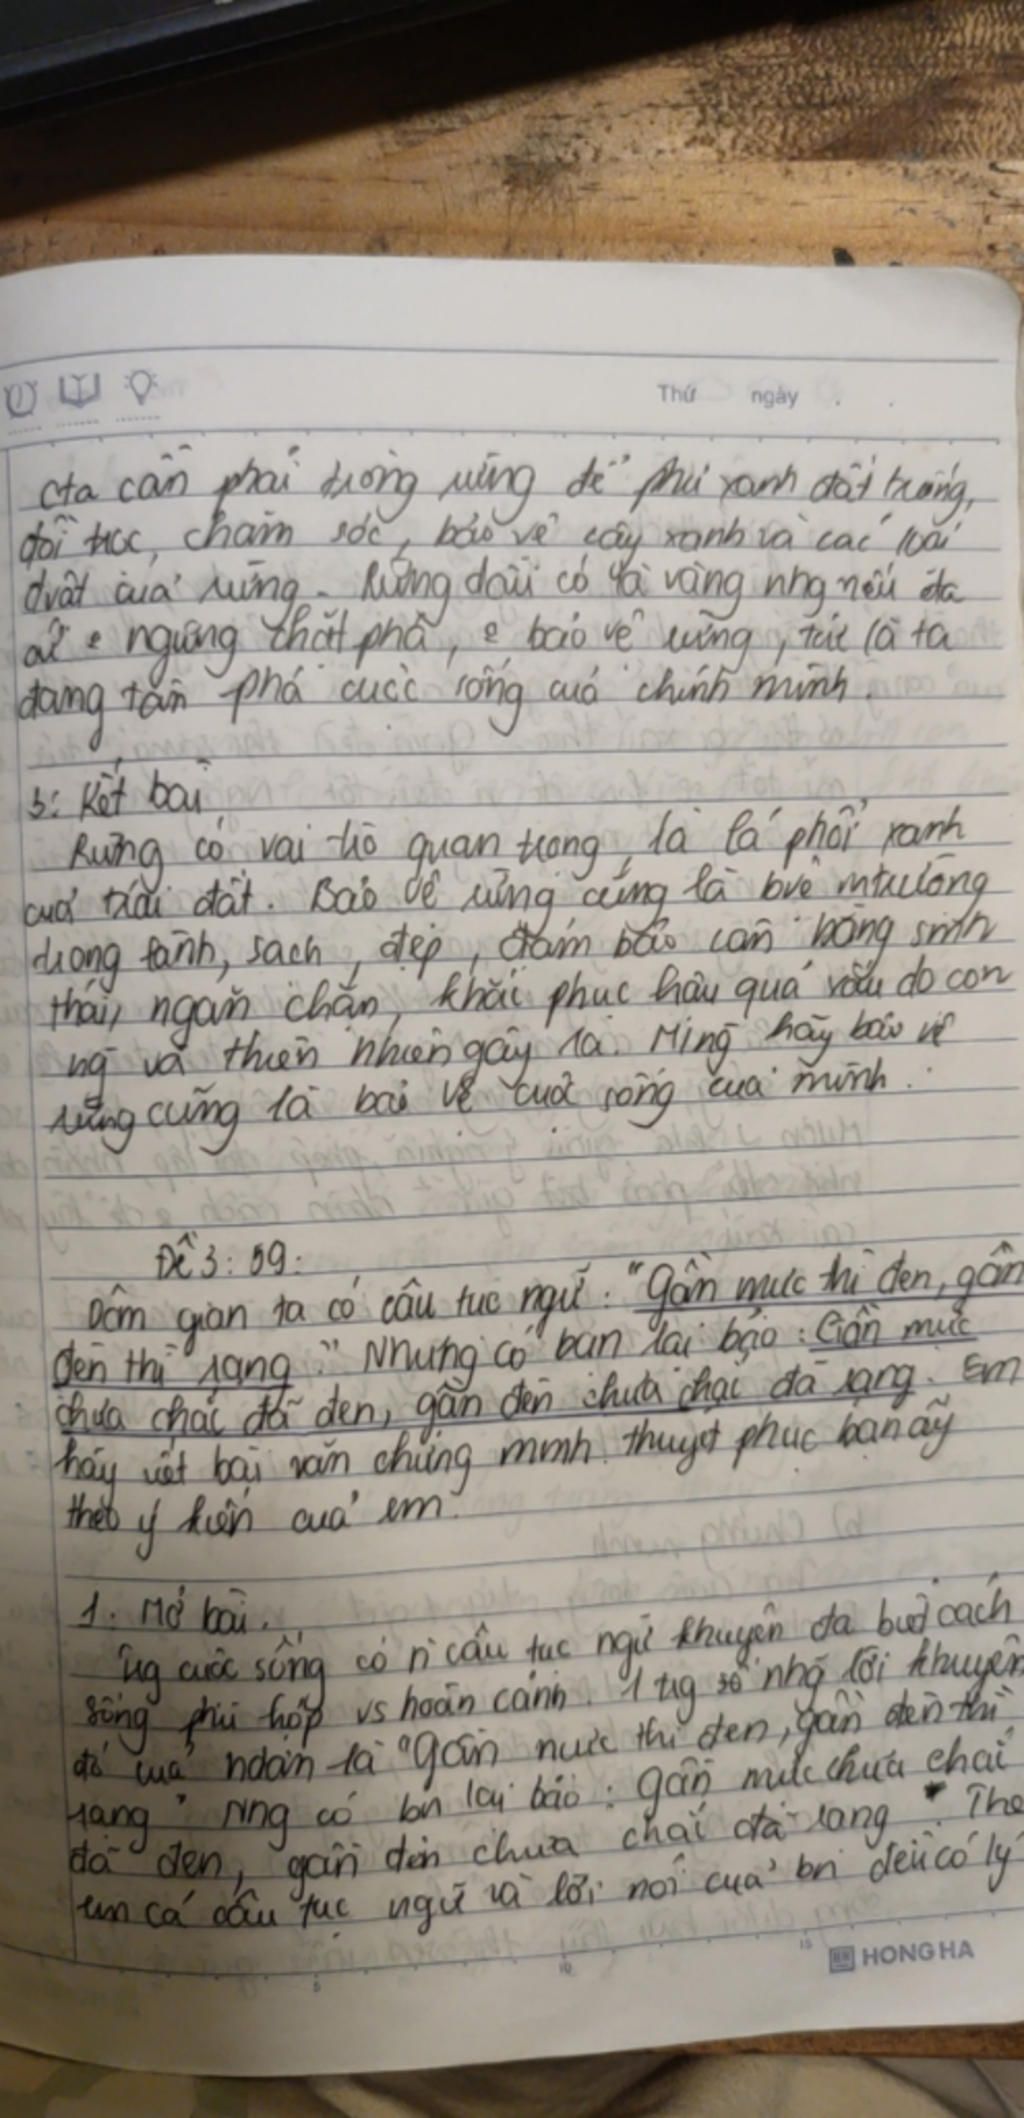 Thứ ngày . .
cta cần phải trồng rừng để phủ xanh đất trống,
đồi trọc, chăm sóc, bảo vệ cây xanh và các loài
đvật của rừng. Rừng dẫu có là vàng nhg nếu ta
ngừng chặt phá, bảo vệ rừng, tức là ta
đang tàn phá cuộc sống của chính mình.
3: Kết bài
Rừng có vai trò quan trọng, là lá phổi xanh
của trái đất. Bảo vệ rừng cũng là bvệ mtrường
trong lành, sạch, đẹp, đảm bảo cân bằng sinh
thái, ngăn chặn, khắc phục hậu quả xấu do con
ng và thiên nhiên gây ra. Mng hãy bảo vệ
rừng cũng là bảo vệ cuộc sống của mình.
Đề 3: 59:
Dân gian ta có câu tục ngữ: "Gần mực thì đen, gần
đèn thì rạng". Nhưng có bạn lại bảo: Gần mực
chưa chắc đã đen, gần đèn chưa chắc đã rạng. Em
hãy viết bài văn chứng minh thuyết phục bạn ấy
theo ý kiến của em.
1. Mở bài.
Trg cuộc sống có n câu tục ngữ khuyên ta biết cách
sống phù hợp vs hoàn cảnh. 1 trg số nhg lời khuyên
đó của ndân là "gần mực thì đen, gần đèn thì
rạng" Nhg có bn lại bảo: gần mực chưa chắc
đã đen, gần đèn chưa chắc đã rạng". Theo
em cả câu tục ngữ và lời nói của bn đều có lý
5 10 15
HONG HA